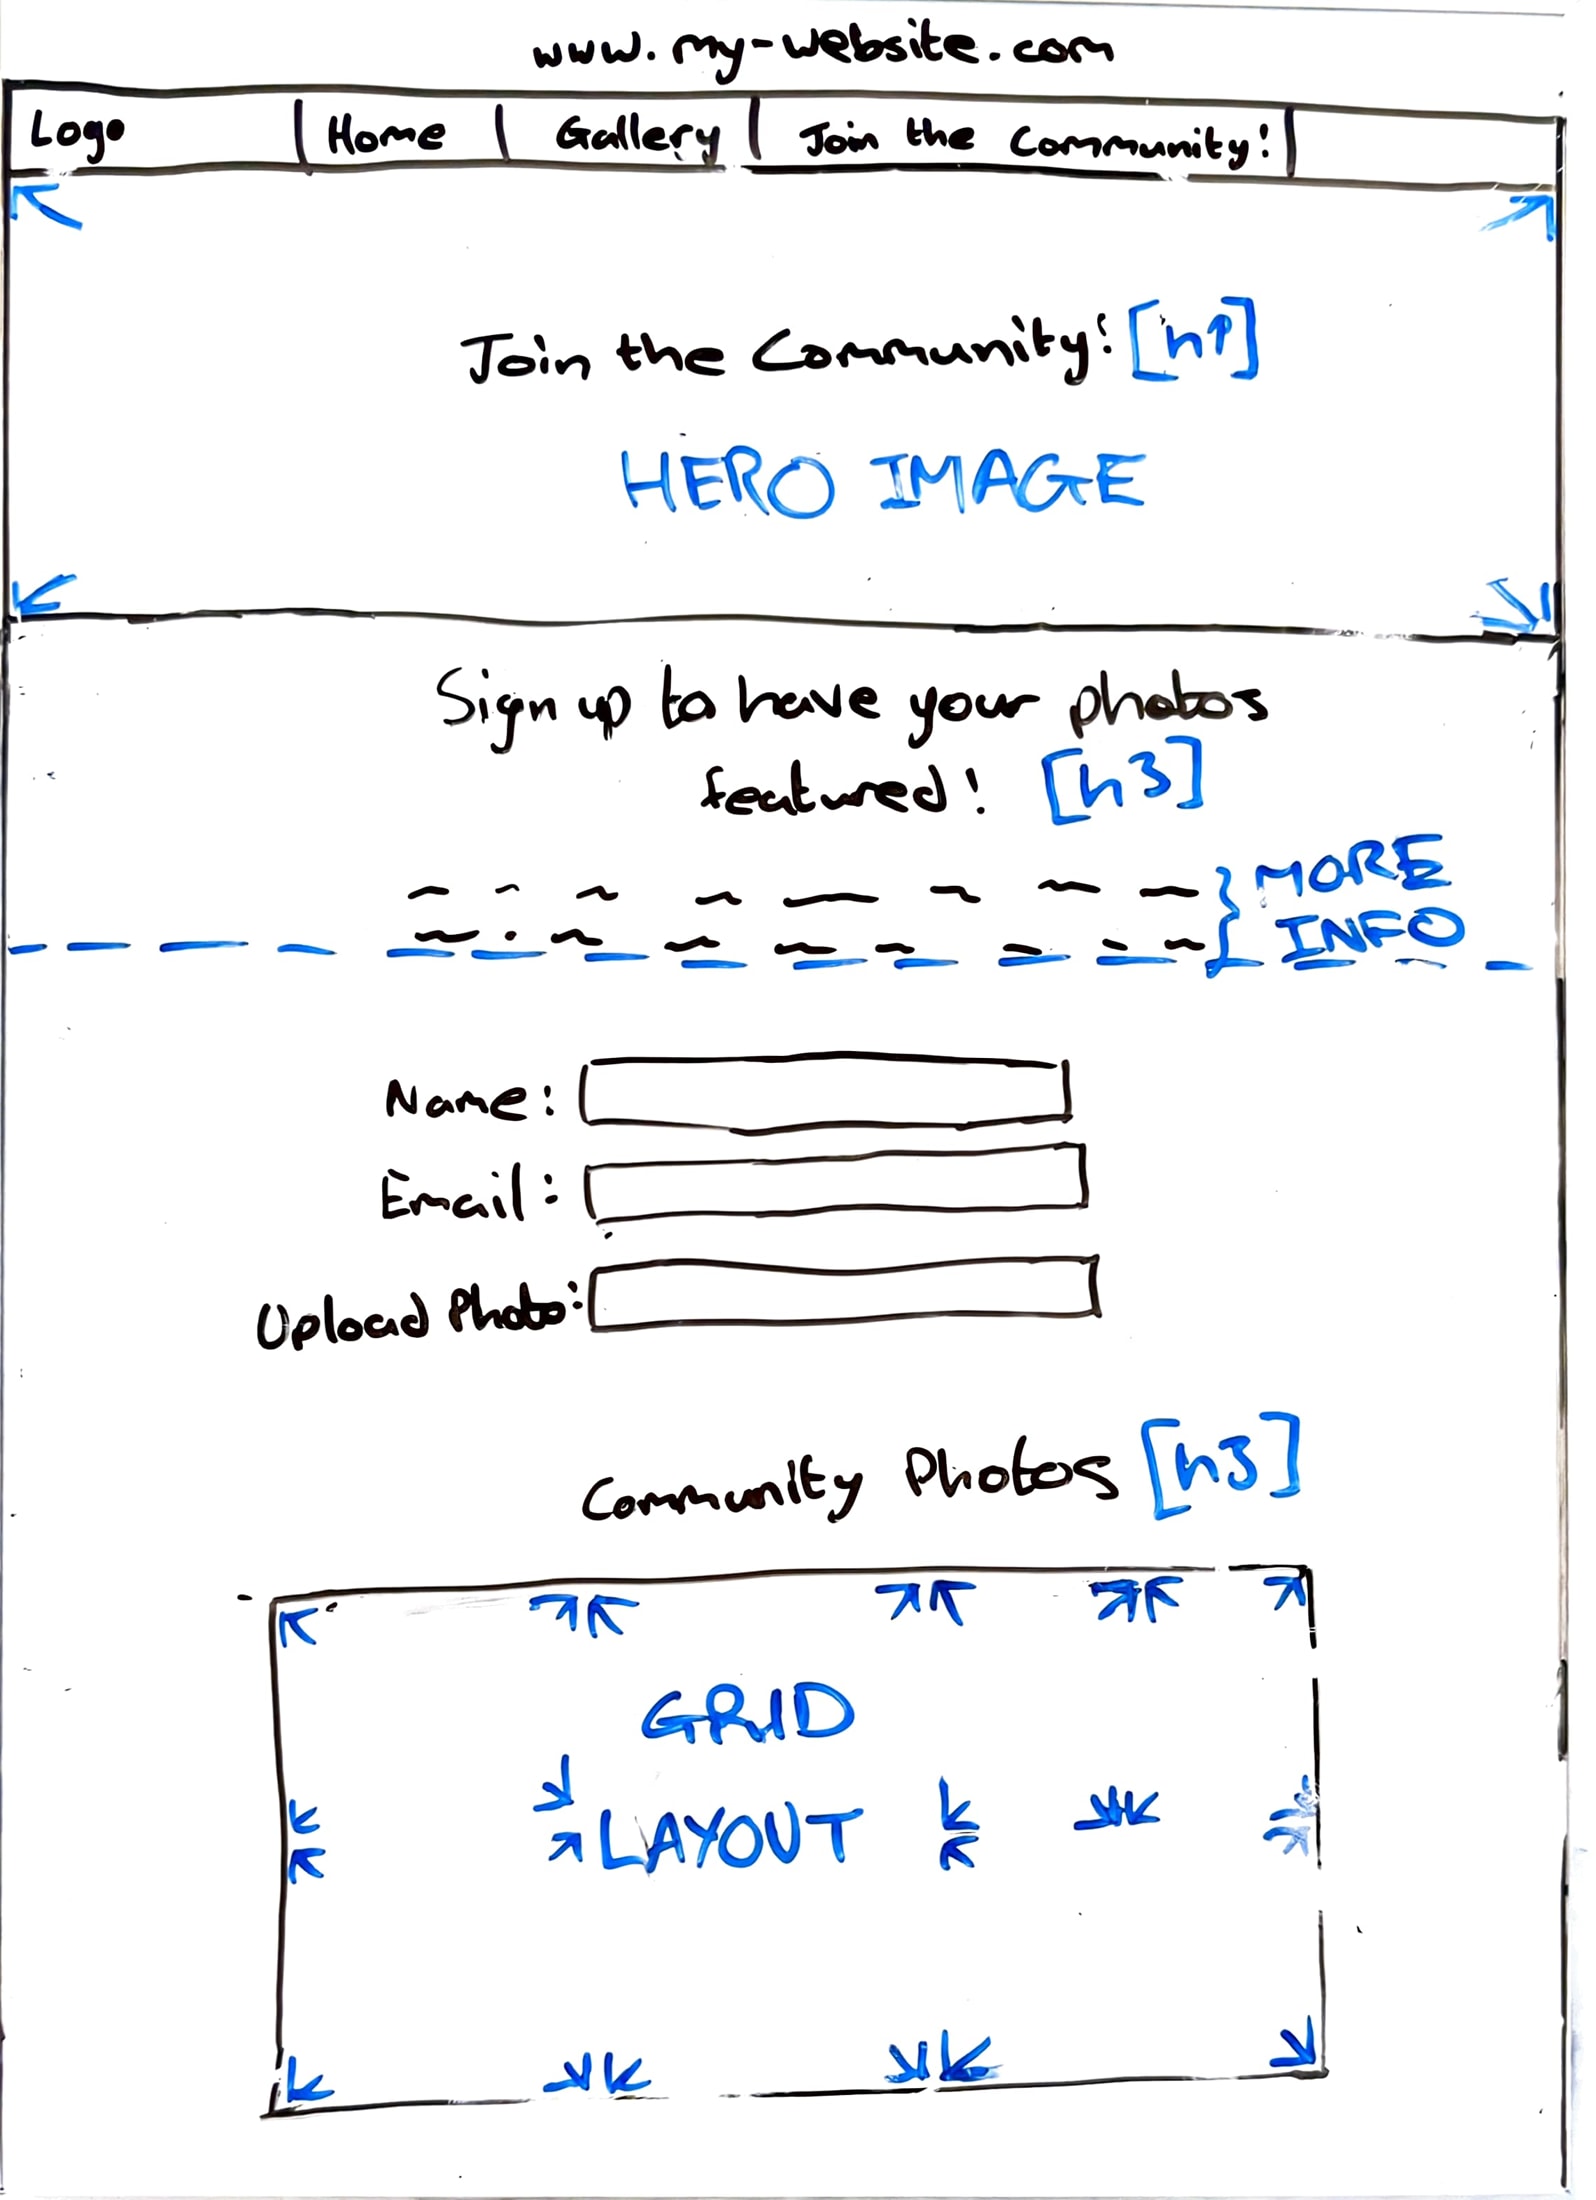 www.my-website.com
Logo | Home | Gallery | Join the Community! |
Join the Community! [h1]
HERO IMAGE
Sign up to have your photos
featured! [h3]
} MORE
{ INFO
Name:
Email:
Upload Photo:
Community Photos [h3]
GRID
LAYOUT